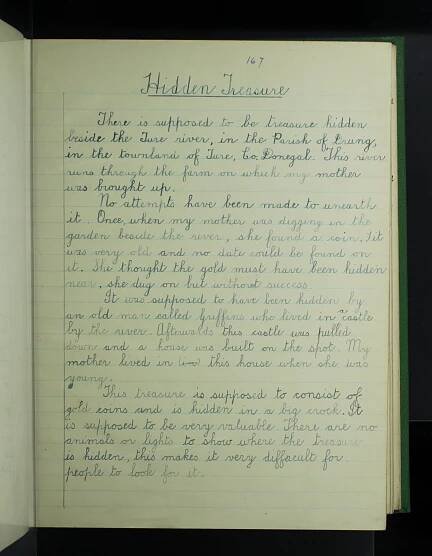 167
Hidden Treasure
There is supposed to be treasure hidden
beside the Ture river, in the Parish of Drung,
in the townland of Ture, Co. Donegal. This river
runs through the farm on which my mother
was brought up.
No attempts have been made to unearth
it. Once, when my mother was digging in the
garden beside the river, she found a coin, it
was very old and no date could be found on
it. She thought the gold must have been hidden
near, she dug on but without success.
It was supposed to have been hidden by
an old man called Griffins who lived in castle
by the river. Afterwalds this castle was pulled
down and a house was built on the spot. My
mother lived in this house when she was
young.
This treasure is supposed to consist of
gold coins and is hidden in a big crock. It
is supposed to be very valuable. There are no
animals or lights to show where the treasure
is hidden, this makes it very diffacult for
people to look for it.